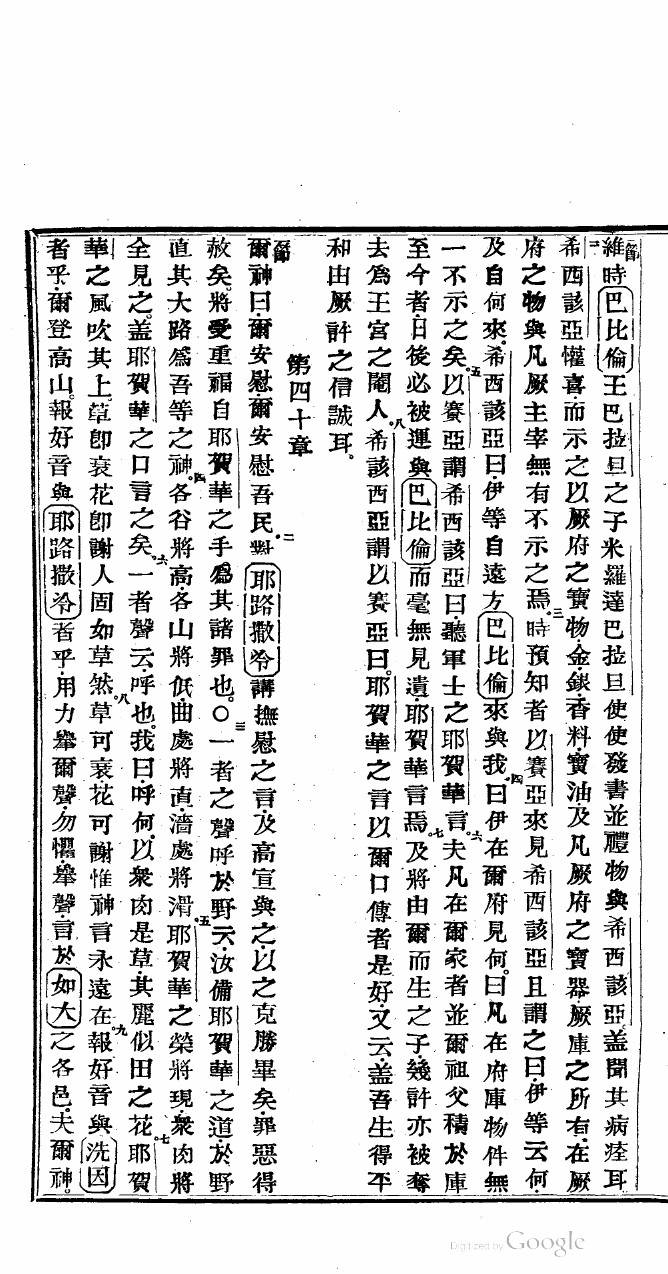 節一維時巴比倫王巴拉旦之子米羅達巴拉旦使使發書並禮物與希西該亞盖聞其病痊耳
二希西該亞懽喜而示之以厥府之寶物金銀香料寶油及凡厥府之寶器厥庫之所有在厥
府之物與凡厥主宰無有不示之焉三時預知者以賽亞來見希西該亞且謂之曰伊等云何
及自何來希西該亞曰伊等自遠方巴比倫來與我四曰伊在爾府見何曰凡在府庫物件無
一不示之矣五以賽亞謂希西該亞曰聽軍士之耶賀華言六夫凡在爾家者並爾祖父積於庫
至今者日後必被運與巴比倫而毫無見遺耶賀華言焉七及將由爾而生之子幾許亦被奪
去為王宮之閹人八希該西亞謂以賽亞曰耶賀華之言以爾口傳者是好又云盖吾生得平
和由厥許之信誠耳
第四十章
節一爾神曰爾安慰爾安慰吾民二對耶路撒冷講撫慰之言及高宣與之以之克勝畢矣罪惡得
赦矣將受重福自耶賀華之手為其諸罪也○三一者之聲呼於野云汝備耶賀華之道於野
直其大路為吾等之神四各谷將高各山將低曲處將直濇處將滑五耶賀華之榮將現衆肉將
全見之盖耶賀華之口言之矣六一者聲云呼也我曰呼何以衆肉是草其麗似田之花七耶賀
華之風吹其上草即衰花即謝人固如草然八草可衰花可謝惟神言永遠在九報好音與洗因
者乎爾登高山報好音與耶路撒冷者乎用力舉爾聲勿懼舉聲言於如大之各邑夫爾神
Digitized by Google